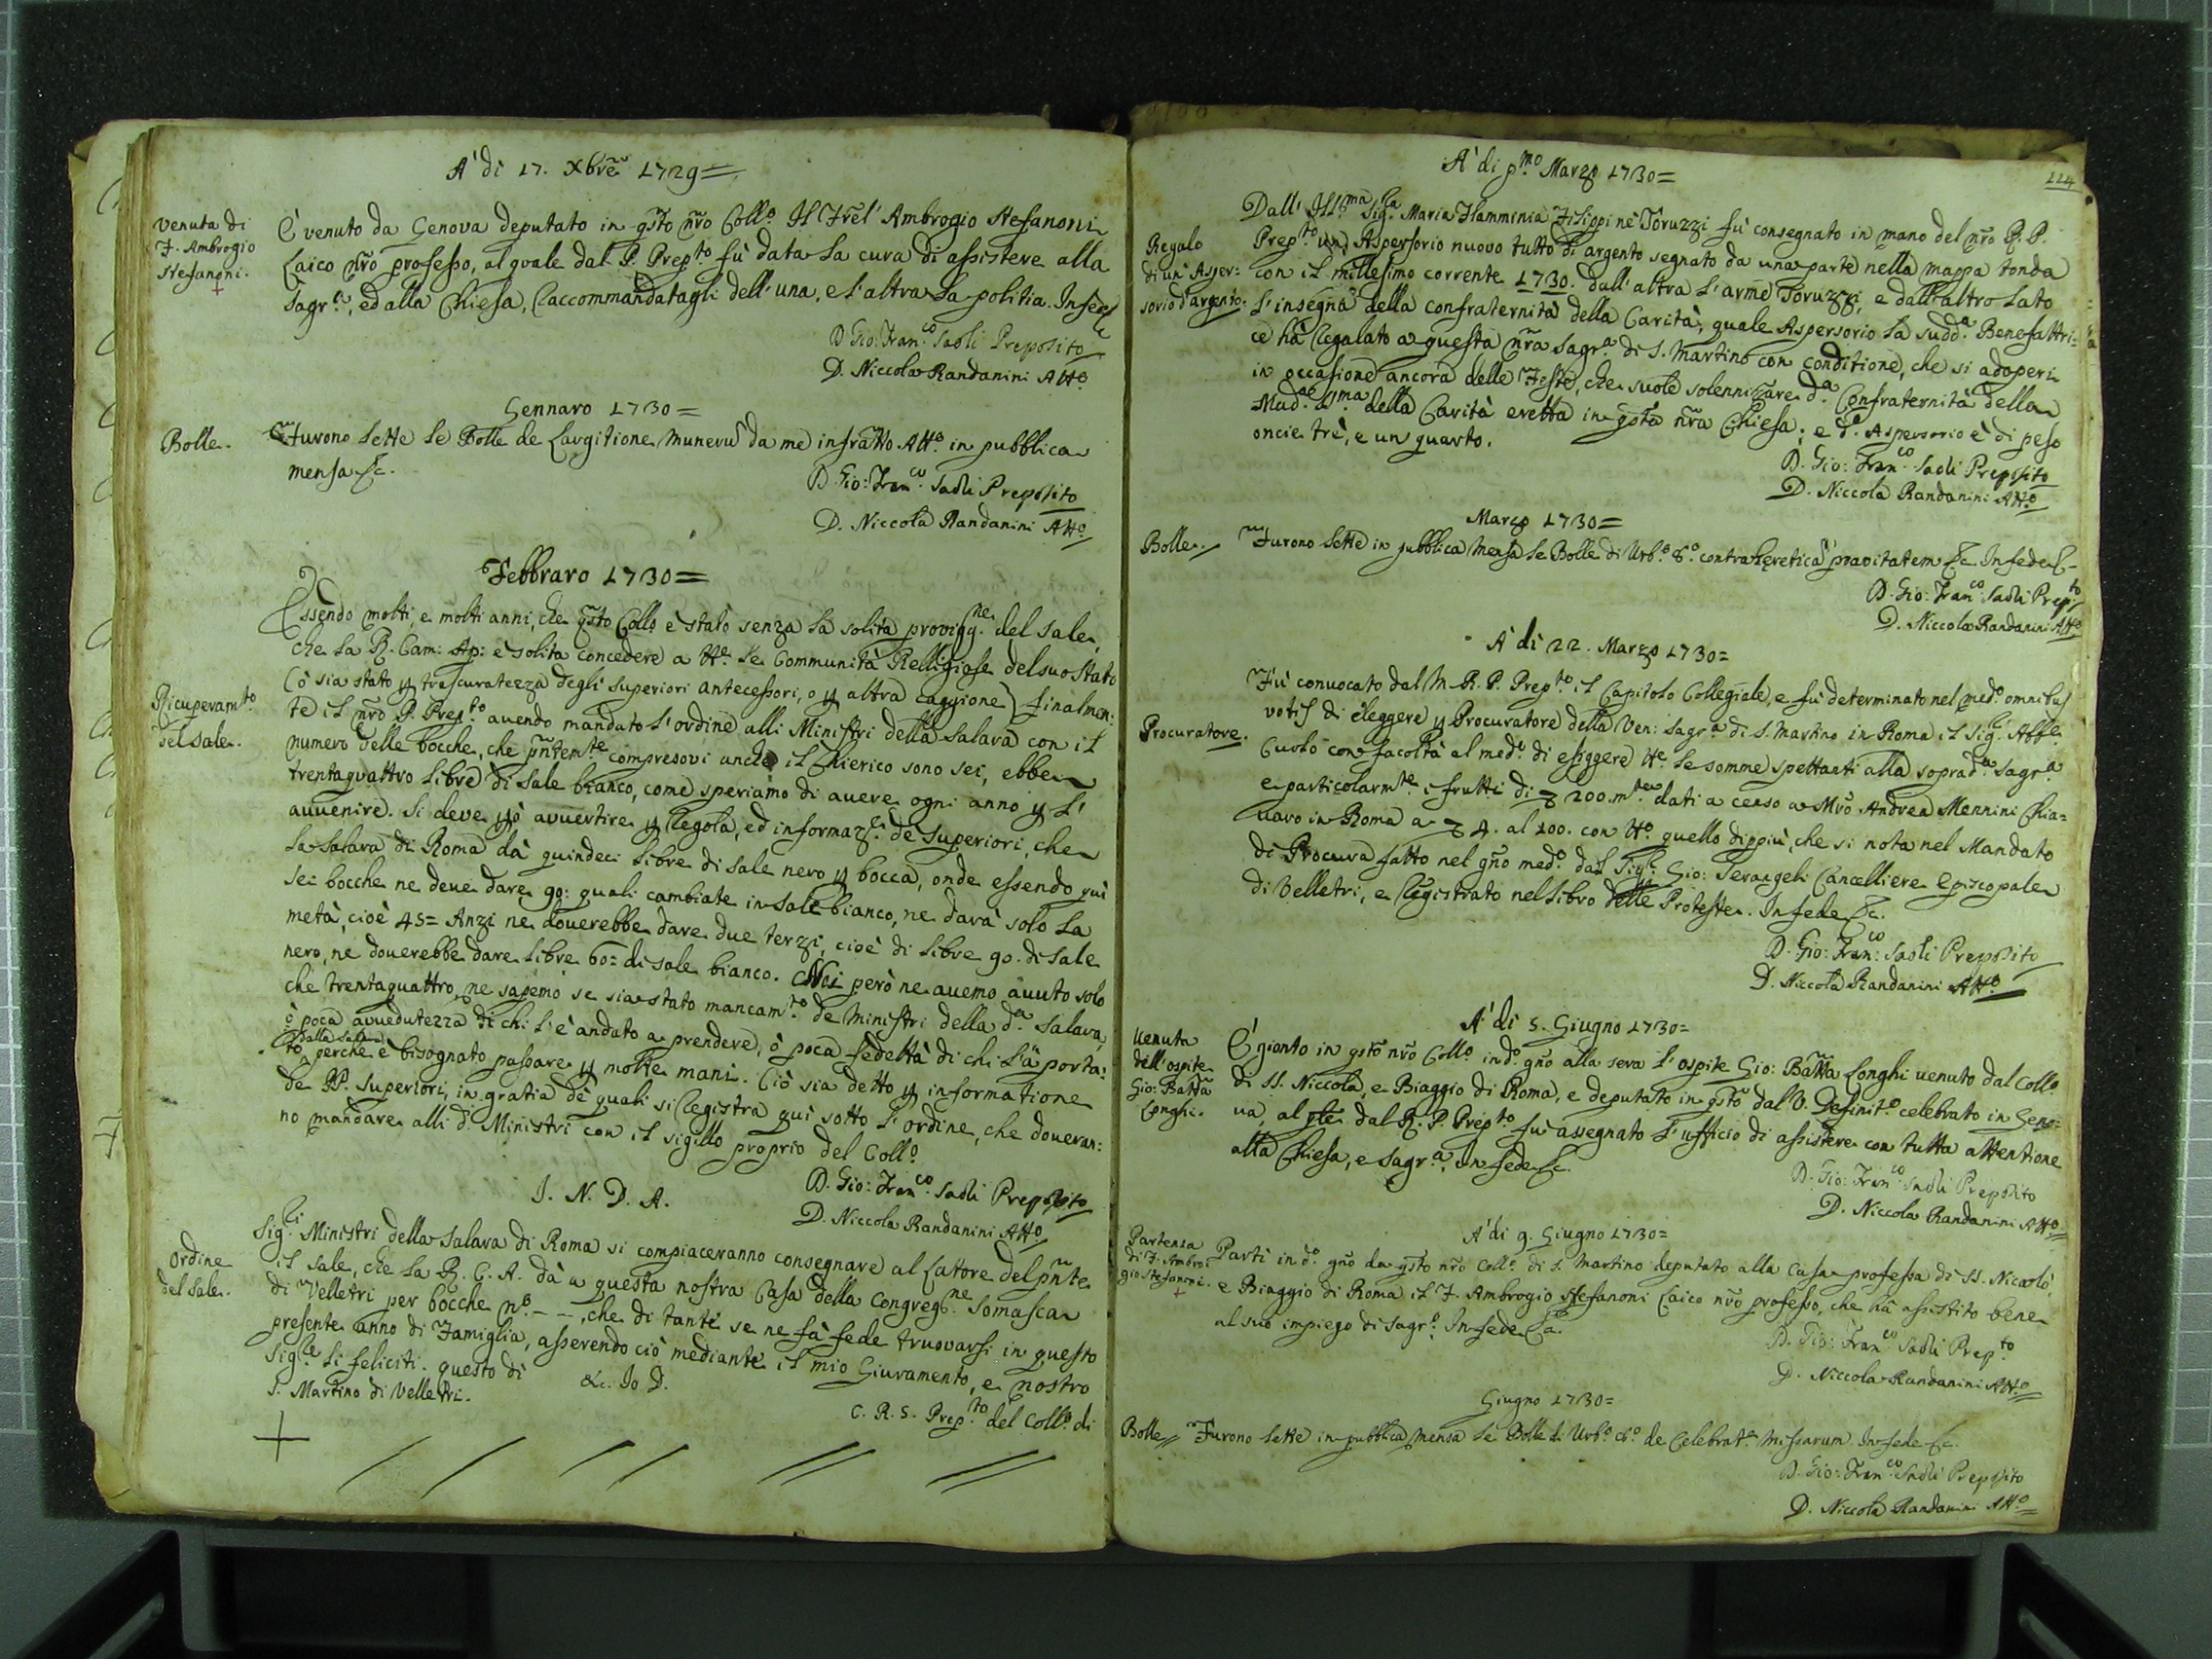 A' di 17. Xbre 1729=
Venuta di
F. Ambrogio
Stefanoni.
È venuto da Genova deputato in gsto nro Collo Il Frel' Ambrogio Stefanoni
Laico nro professo, al quale dal P. Prepto fù data la cura di assistere alla
Sagra, ed alla Chiesa, raccommandatagli dell'una, e l'altra la politia. In fede
D. Gio: Franco Saoli Preposito
D. Niccola Randanini Atto
Gennaro 1730=
Bolle.
Furono lette le Bolle de Largitione Munerum da me infratto Atto in pubblica
mensa &c.
D. Gio: Franco Saoli Preposito
D. Niccola Randanini Atto
Febbraro 1730=
Ricuperamto
del sale.
Essendo molti, e molti anni, che gsto Collo è stato senza la solita provigne del sale,
che la R. Cam: Ap: è solita concedere a tte le Communità Relligiose del suo stato
(ò sia stato p trascuratezza degli superiori antecessori, o p altra caggione) finalmen:
te il nro P. Prepto avendo mandato l'ordine alli Ministri della Salara con il
numero delle bocche, che pntente compresovi anche il Chierico sono sei, ebbe
trentaquattro libre di sale bianco, come speriamo di avere ogni anno p l'
avvenire. Si deve pò avvertire p regola, ed informaze de Superiori, che
la Salara di Roma dà quindeci libre di sale nero p bocca, onde essendo quì
sei bocche ne deve dare 90: quali cambiate in sale bianco, ne darà solo la
metà, cioè 45= Anzi ne doverebbe dare due terzi, cioè di libre 90. di sale
nero, ne doverebbe dare libre 60= di sale bianco. Noi però ne avemo avuto solo
che trentaquattro, ne sapemo se sia stato mancamto de Ministri della da Salara,
ò poca avvedutezza di chi l'è andato a prendere, ò poca fedeltà di chi l'à porta:
to dalla Salara perche è bisognato passare p molte mani. Ciò sia detto p informatione
de PP. Superiori, in gratia de quali si registra quì sotto l'ordine, che doveran:
no mandare alli d. Ministri con il sigillo proprio del Collo
D. Gio: Franco Saoli Preposito
D. Niccola Randanini Atto
I. N. D. A.
Ordine
del sale.
Sigri Ministri della Salara di Roma si compiaceranno consegnare al Lattore del pnte
il sale, che la R. C. A. dà a questa nostra Casa della Congregne Somasca
di Velletri per bocche no. - - , che di tante se ne fà fede truovarsi in questo
presente anno di Famiglia, asserendo ciò mediante il mio Giuramento, e nostro
Sigre li feliciti. questo dì &c. Io D.
C. R. S. Prepto del Collo di
S. Martino di Velletri.
114
A' di pmo Marzo 1730=
Regalo
di un' Asper:
sorio d'argento.
Dall' Illma Siga Maria Flamminia Filippi ne' Toruzzi fù consegnato in mano del nro R. P.
Prepto un' Aspersorio nuovo tutto di argento segnato da una parte nella mappa tonda
con il millesimo corrente 1730. dall'altra l'arme Toruzzi, e dall'altro lato
l'insegna della confraternità della Carità, quale Aspersorio la sudda Benefattri:
ce hà regalato a questa nra Sagra di S. Martino con conditione, che si adoperi
in occasione ancora delle Feste, che suole solennizzare da Confraternità della
Madae SSma della Carità eretta in gsta nra Chiesa; e do Aspersorio è di peso
oncie trè, e un quarto.
D. Gio: Franco Saoli Preposito
D. Niccola Randanini Atto
Marzo 1730=
Bolle.
Furono lette in pubblica Mensa le Bolle di Urbo 8o contra hereticā pravitatem &c. In fede &c
D. Gio: Franco Saoli Prepto
D. Niccola Randanini Atto
A' di 22. Marzo 1730=
Procuratore.
Fù convocato dal M. R. P. Prepto il Capitolo Collegiale, e fù determinato nel medo omnibus
votis di eleggere p Procuratore della Ven: Sagra di S. Martino in Roma il Sigr Abbe
Custò con facoltà al medo di essiggere tte le somme spettanti alla soprada Sagra
e particolarmte i frutti di 200. mta dati a censo a Mro Andrea Mennini Chia=
varo in Roma a 4. al 100. con tto quello dippiù, che si nota nel Mandato
di Procura fatto nel gno medo dal Sigr Gio: Serangeli Cancelliere Episcopale
di Velletri, e registrato nel libro delle Proteste. In fede &c.
D. Gio: Franco: Saoli Preposito
D. Niccola Randanini Atto
A' di 5. Giugno 1730=
Venuta
dell'ospite
Gio: Batta
Longhi.
È gionto in gsto nro Collo in do gno alla sera l'ospite Gio: Batta Longhi venuto dal Collo
di SS. Niccola, e Biaggio di Roma, e deputato in gsto dal V. Definito celebrato in Geno=
va, al qle dal R. P. Prepto fù assegnato l'ufficio di assistere con tutta attentione
alla Chiesa, e Sagra, in fede &c.
D. Gio: Franco Saoli Preposito
D. Niccola Randanini Atto
A' di 9. Giugno 1730=
Partenza
di F. Ambro
gio Stefanoni.
Partì in do gno da gsto nro Collo di S. Martino deputato alla Casa professa di SS. Niccolò,
e Biaggio di Roma il F. Ambrogio Stefanoni Laico nro professo, che hà assistito bene
al suo impiego di Sagro. In fede &c.
D. Gio: Franco Saoli Prepto
D. Niccola Randanini Atto
Giugno 1730=
Bolle
Furono lette in pubblica Mensa le Bolle di Urbo 8o de Celebrate Missarum. In fede &c.
D. Gio: Franco Saoli Preposito
D. Niccola Randanini Atto